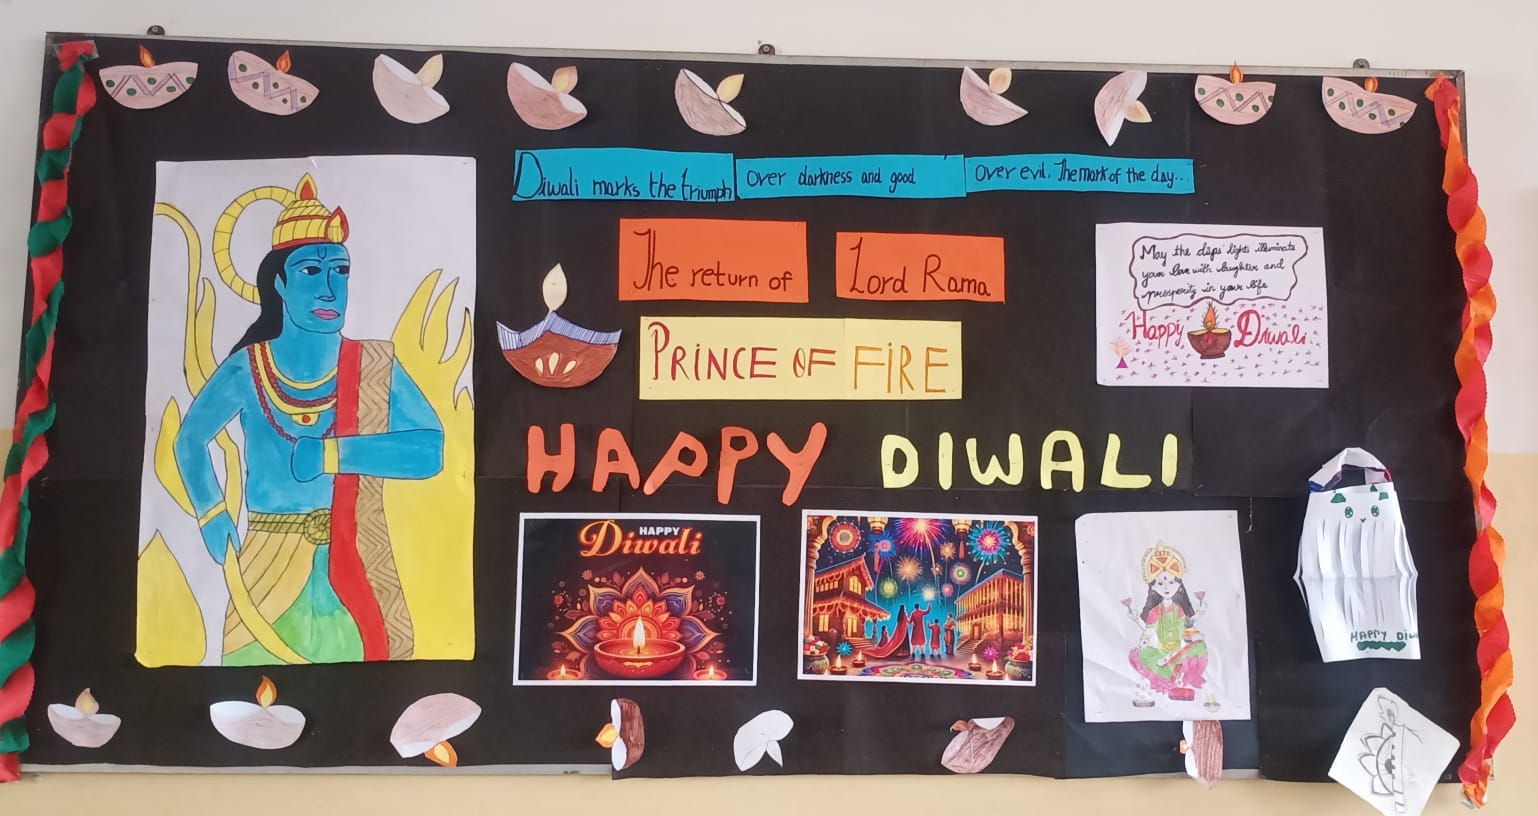 Diwali marks the triumph over darkness and good over evil. The mark of the day...
The return of Lord Rama
PRINCE OF FIRE
HAPPY DIWALI
May the diyas' lights illuminate
your love with laughter and
prosperity in your life
Happy Diwali
HAPPY
Diwali
HAPPY DIW